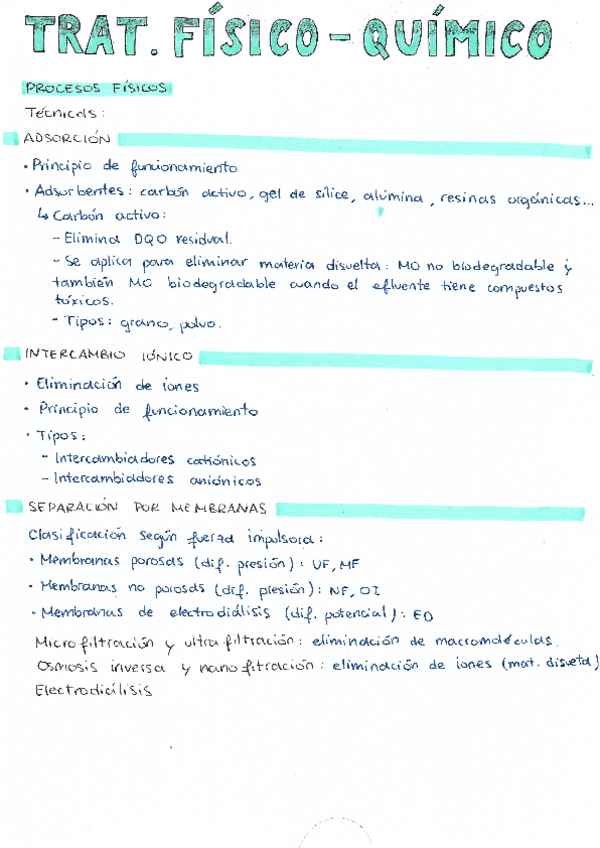 TRAT. FÍSICO-QUÍMICO
PROCESOS FÍSICOS
Técnicas:
ADSORCIÓN
· Principio de funcionamiento
· Adsorbentes: carbón activo, gel de sílice, alúmina, resinas orgánicas...
↳ Carbón activo:
- Elimina DQO residual.
- Se aplica para eliminar materia disuelta: MO no biodegradable y
también MO biodegradable cuando el efluente tiene compuestos
tóxicos.
- Tipos: grano, polvo.
INTERCAMBIO IÓNICO
· Eliminación de iones
· Principio de funcionamiento
· Tipos:
- Intercambiadores catiónicos
- Intercambiadores aniónicos
SEPARACIÓN POR MEMBRANAS
Clasificación según fuerza impulsora:
· Membranas porosas (dif. presión): UF, MF
· Membranas no porosas (dif. presión): NF, OI
· Membranas de electrodiálisis (dif. potencial): ED
Microfiltración y ultrafiltración: eliminación de macromoléculas.
Osmosis inversa y nanofitración: eliminación de iones (mat. disuelta)
Electrodiálisis